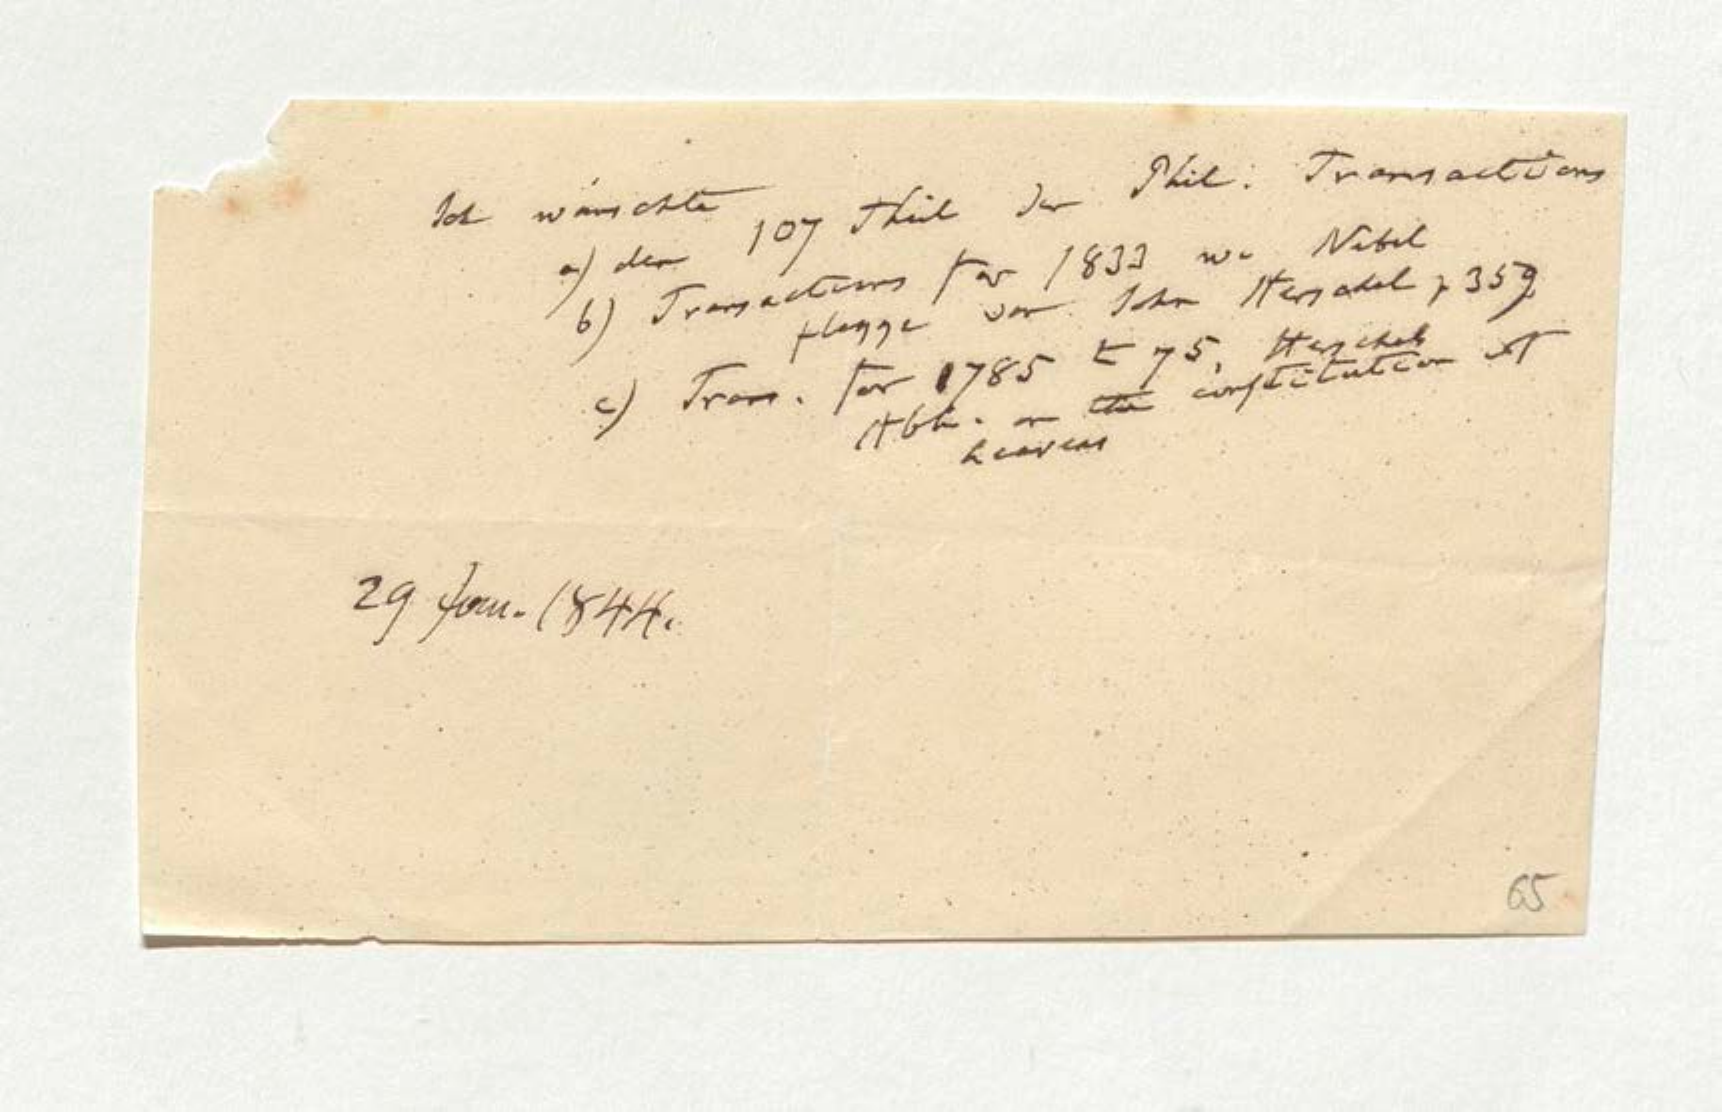 Ich wünschte
a) den 107 Theil der Phil. Transactions
b) Transactions for 1833 wo Nebel
von John Herschel p 359
c) Trans. for 1785 t 75. Herschels
Abh. on the construction of
heavens
29 Jan. 1844.
65